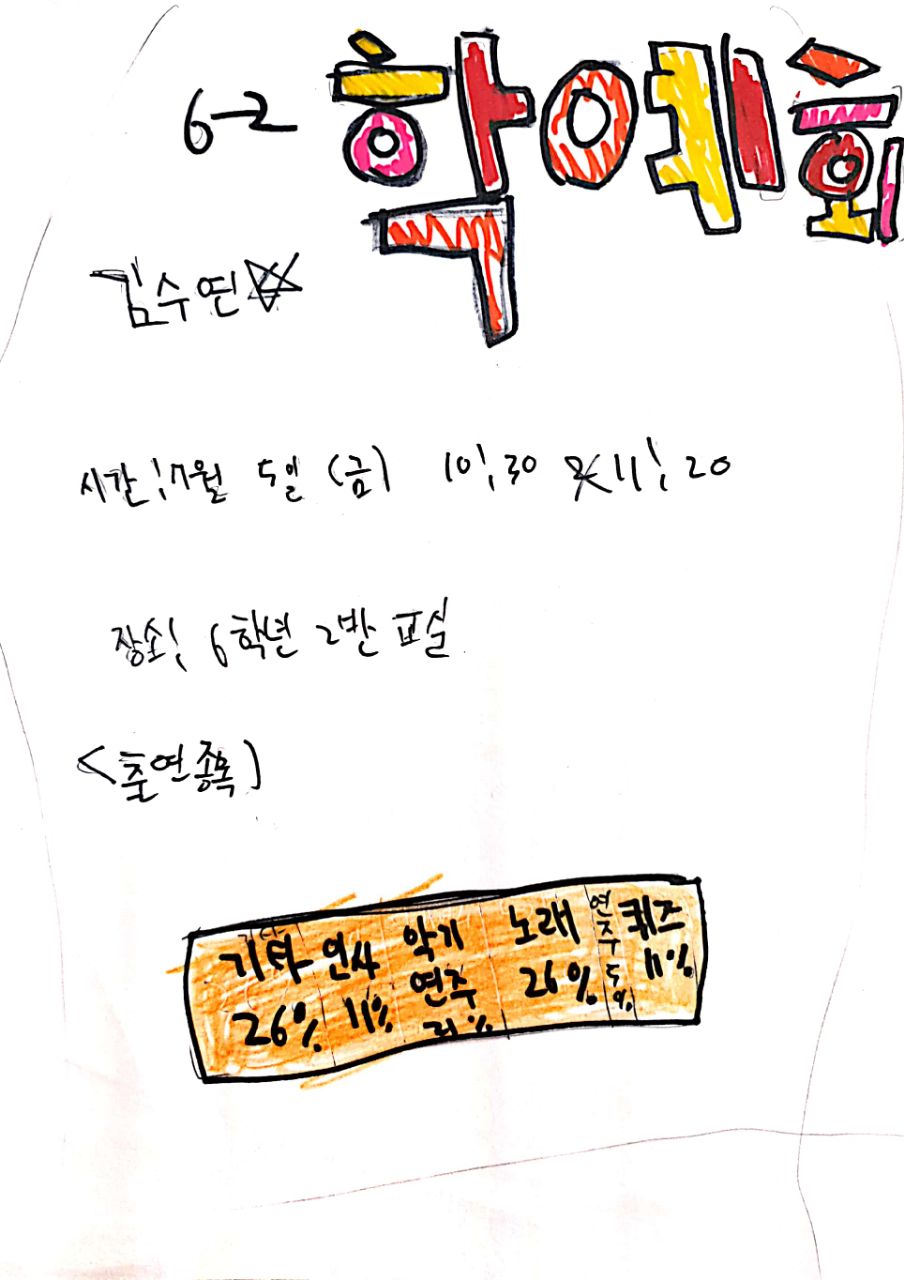 6-2 학예회
김수연
시간:7월 5일 (금) 10:30 11:20
장소: 6학년 2반 교실
<출연종목)
기타 26%
인사 11%
악기 연주 21%
노래 26%
연주 5%
퀴즈 11%